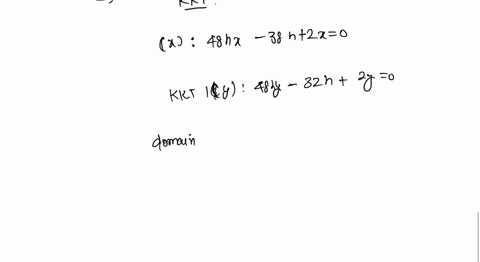 KKT
(x): 48hx - 38h+2x=0
KKT 1(y): 48hy - 32h + 2y=0
domain